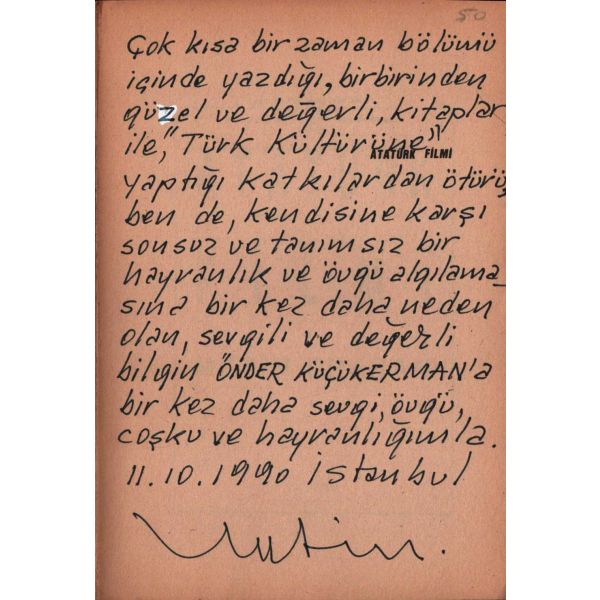 50
Çok kısa bir zaman bölümü
içinde yazdığı, birbirinden
güzel ve değerli, kitaplar
ile, "Türk Kültürüne"
ATATÜRK FİLMİ
yaptığı katkılardan ötürü,
ben de, kendisine karşı
sonsuz ve tanımsız bir
hayranlık ve övgü algılama_
sına bir kez daha neden
olan, sevgili ve değerli
bilgin ÖNDER KÜÇÜKERMAN'a
bir kez daha sevgi, övgü,
coşku ve hayranlığımla.
11.10.1990 İstanbul